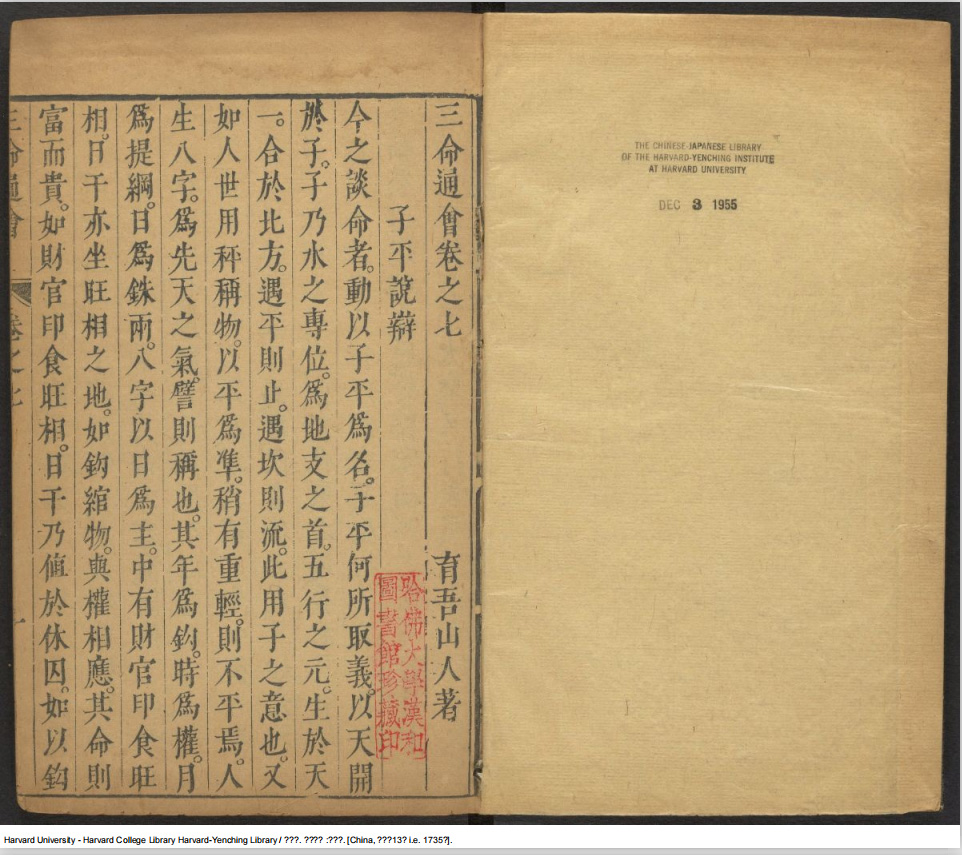 三命通會卷之七 育吾山人著
子平說辯
今之談命者。動以子平爲名。子平何所取義。以天開
於子。子乃水之專位。爲地支之首。五行之元。生於天
一。合於北方。遇平則止。遇坎則流。此用子之意也。又
如人世用秤稱物。以平爲準。稍有重輕。則不平焉。人
生八字。爲先天之氣。譬則稱也。其年爲鈎。時爲權。月
爲提綱。日爲銖兩。八字以日爲主。中有財官印食旺
相。日干亦坐旺相之地。如鈎綰物。與權相應。其命則
富而貴。如財官印食旺相。日干乃値於休囚。如以鈎
三命通會 卷之七
哈佛大學漢和
圖書館珍藏印
THE CHINESE-JAPANESE LIBRARY
OF THE HARVARD-YENCHING INSTITUTE
AT HARVARD UNIVERSITY
DEC 3 1955
Harvard University - Harvard College Library Harvard-Yenching Library / ???. ???? :???. [China, ???13? i.e. 1735?].